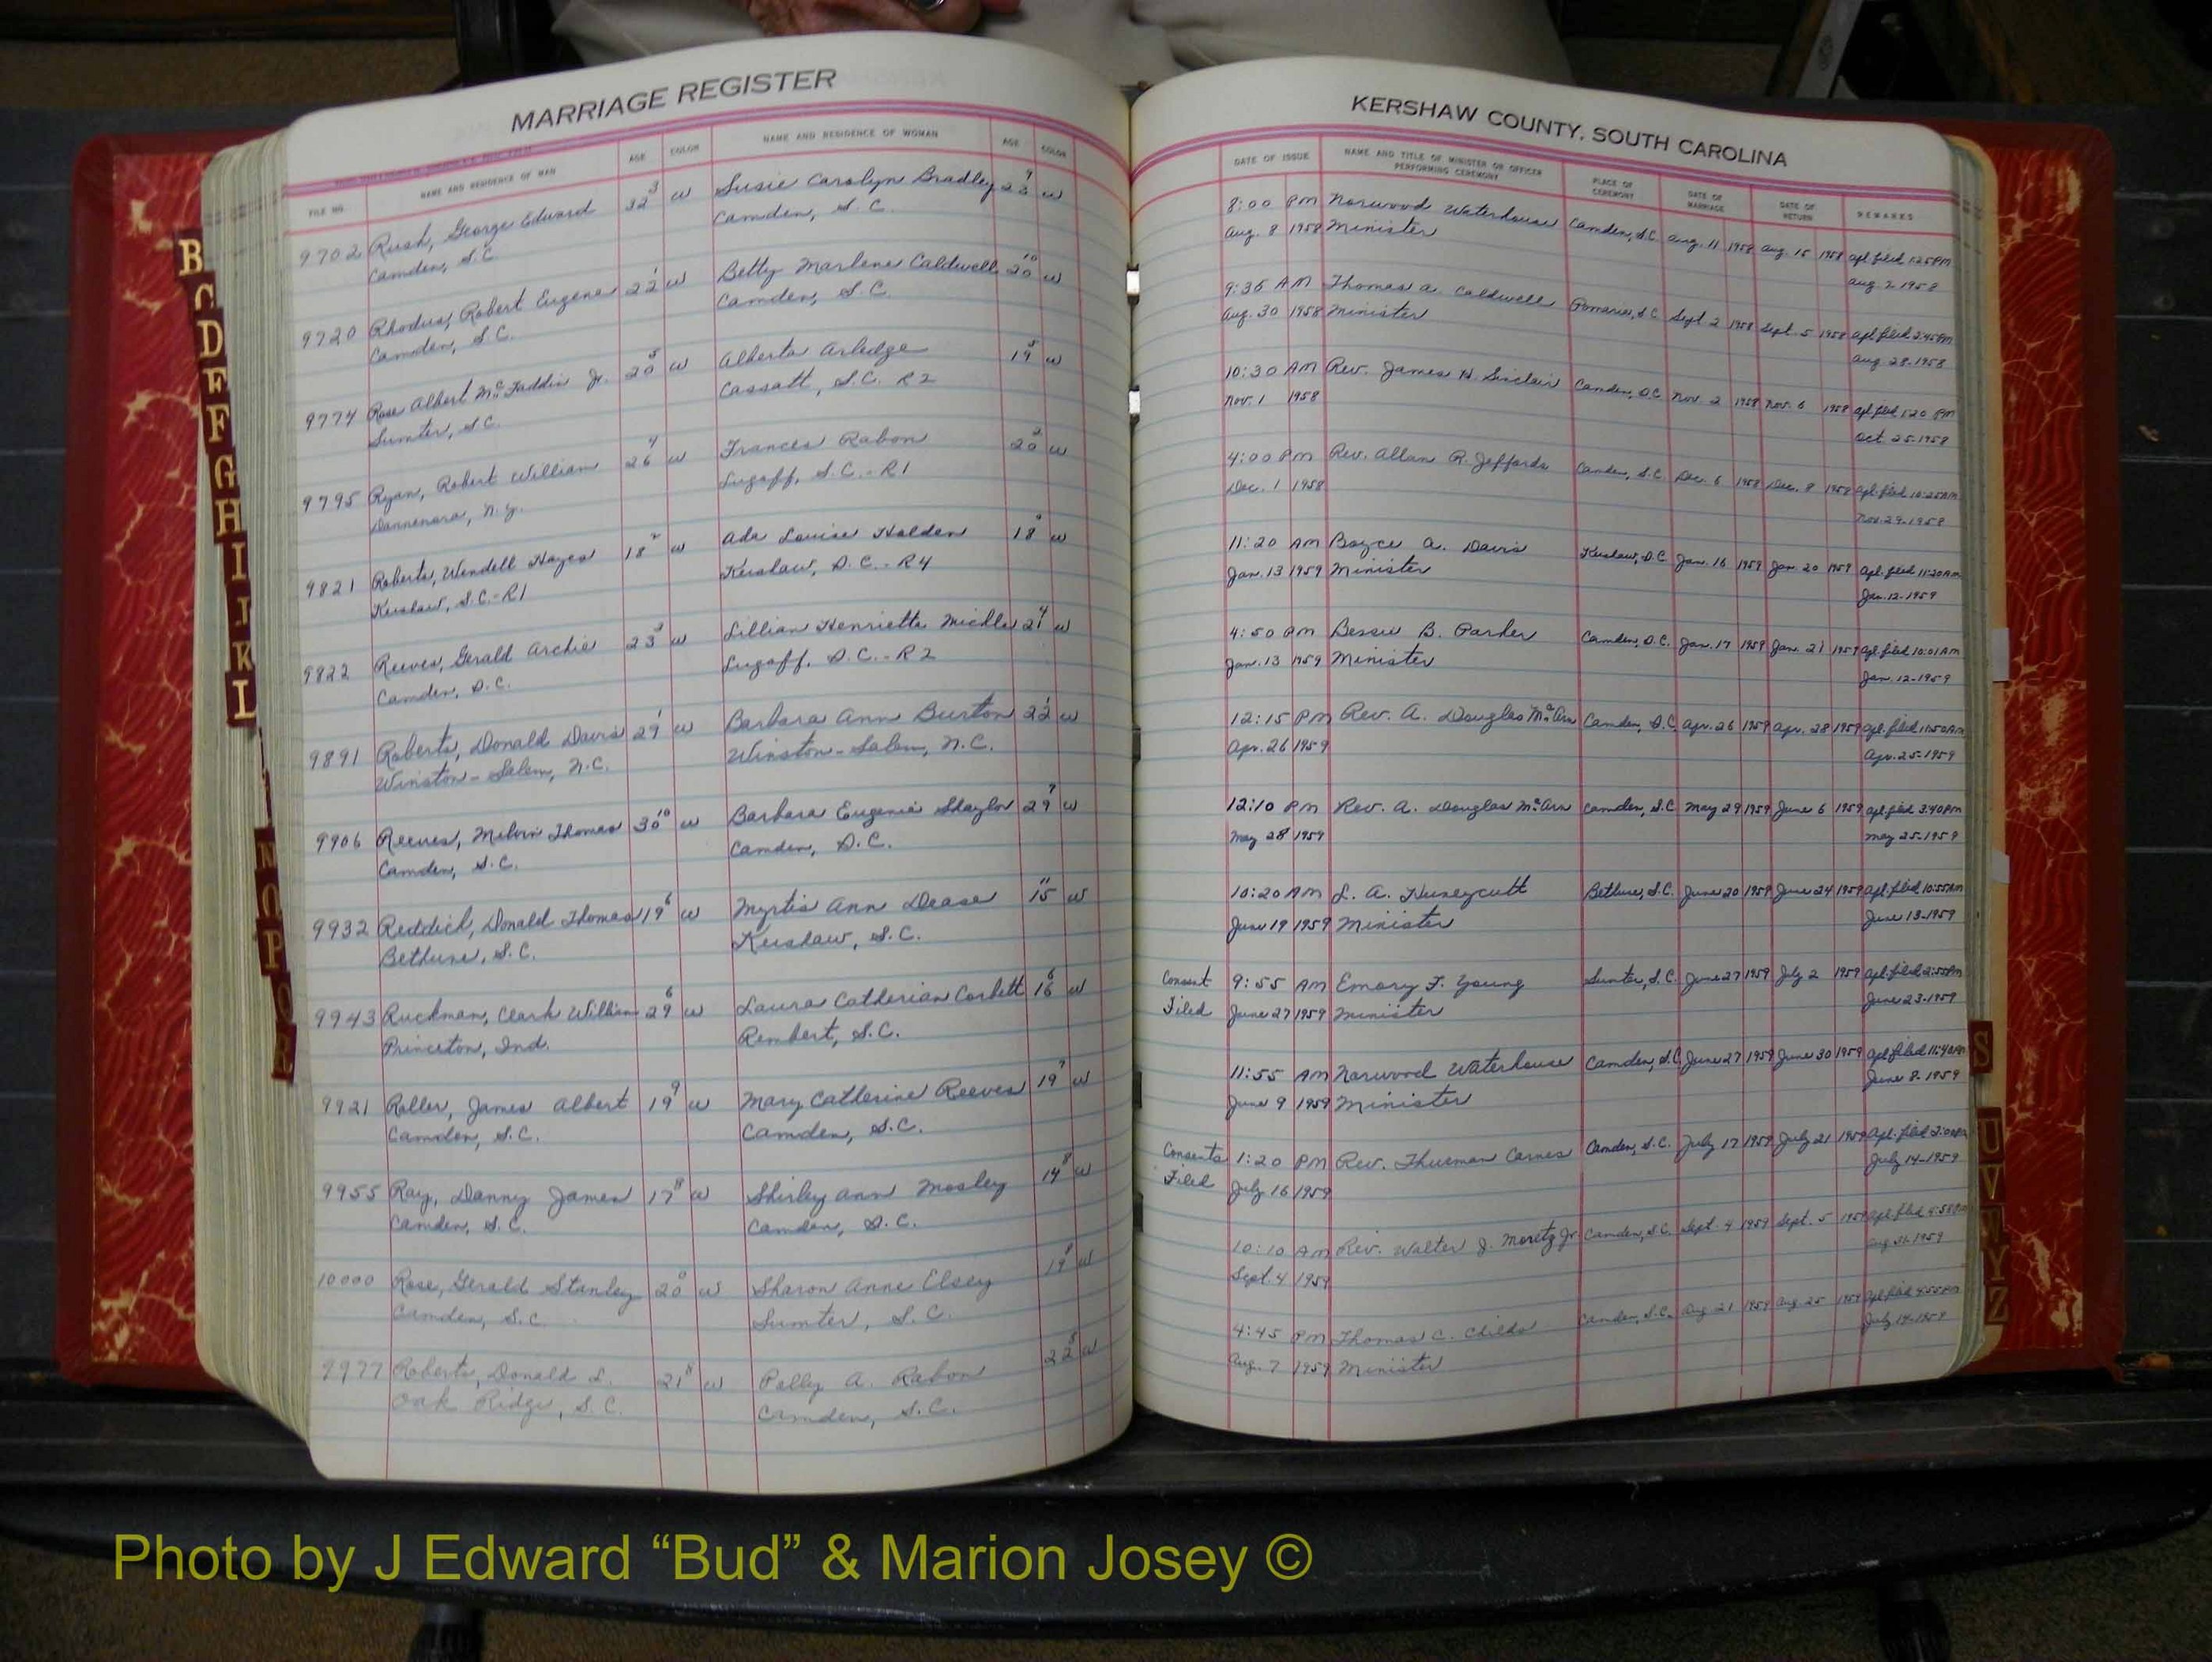 MARRIAGE REGISTER
FILE NO. NAME AND RESIDENCE OF MAN AGE COLOR NAME AND RESIDENCE OF WOMAN AGE COLOR
9702 Rush, George Edward 32 3 w Susie Carolyn Bradley 23 9 w
Camden, S.C. Camden, S.C.
9720 Rhodus, Robert Eugene 22 1 w Betty Marlene Caldwell 20 10 w
Camden, S.C. Camden, S.C.
9774 Rose Albert McFaddin Jr. 20 5 w Alberta Arledge 19 5 w
Sumter, S.C. Cassatt, S.C. R2
9795 Ryan, Robert William 26 4 w Frances Rabon 20 2 w
Dannemora, N.Y. Lugoff, S.C.-R1
9821 Roberts, Wendell Hayes 18 w Ada Louise Holden 18 w
Kershaw, S.C.-R1 Kershaw, S.C.-R4
9822 Reeves, Gerald Archie 23 2 w Lillian Henrietta Mickle 21 4 w
Camden, S.C. Lugoff, S.C.-R2
9891 Roberts, Donald Davis 29 1 w Barbara Ann Burton 22 1 w
Winston-Salem, N.C. Winston-Salem, N.C.
9906 Reeves, Melvin Thomas 30 10 w Barbara Eugenie Shaylor 29 7 w
Camden, S.C. Camden, S.C.
9932 Reddick, Donald Thomas 19 6 w Myrtis Ann Dease 15 11 w
Bethune, S.C. Kershaw, S.C.
9943 Ruckman, Clark William 29 6 w Laura Catherian Corbett 16 6 w
Princeton, Ind. Rembert, S.C.
9921 Roller, James Albert 19 9 w Mary Catherine Reeves 19 9 w
Camden, S.C. Camden, S.C.
9955 Ray, Danny James 17 8 w Shirley Ann Mosley 14 8 w
Camden, S.C. Camden, S.C.
10000 Rose, Gerald Stanley 20 0 w Sharon Anne Elsey 19 w
Camden, S.C. Sumter, S.C.
9977 Roberts, Donald L. 21 8 w Polly A. Rabon 22 8 w
Oak Ridge, S.C. Camden, S.C.
KERSHAW COUNTY, SOUTH CAROLINA
DATE OF ISSUE NAME AND TITLE OF MINISTER OR OFFICER PERFORMING CEREMONY PLACE OF CEREMONY DATE OF MARRIAGE DATE OF RETURN REMARKS
8:00 PM Norwood Waterhouse Camden, S.C. Aug. 11 1958 Aug. 15 1958 Apl. filed 1:25 PM
Aug. 8 1958 Minister Aug. 2 1958
9:35 AM Thomas A. Caldwell Pomaria, S.C. Sept 2 1958 Sept. 5 1958 Apl. filed 2:45 PM
Aug. 30 1958 Minister Aug. 28-1958
10:30 AM Rev. James H. Sinclair Camden, S.C. Nov. 2 1958 Nov. 6 1958 Apl. filed 1:20 PM
Nov. 1 1958 Oct. 25-1958
4:00 PM Rev. Allan R. Jeffords Camden, S.C. Dec. 6 1958 Dec. 8 1958 Apl. filed 10:25 AM
Dec. 1 1958 Nov. 29-1958
11:20 AM Boyce A. Davis Kershaw, S.C. Jan. 16 1959 Jan. 20 1959 Apl. filed 11:20 AM
Jan. 13 1959 Minister Jan. 12-1959
4:50 PM Bessie B. Parker Camden, S.C. Jan. 17 1959 Jan. 21 1959 Apl. filed 10:01 AM
Jan. 13 1959 Minister Jan. 12-1959
12:15 PM Rev. A. Douglas McArn Camden, S.C. Apr. 26 1959 Apr. 28 1959 Apl. filed 11:50 AM
Apr. 26 1959 Apr. 25-1959
12:10 PM Rev. A. Douglas McArn Camden, S.C. May 29 1959 June 6 1959 Apl. filed 3:40 PM
May 28 1959 May 25-1959
10:20 AM L. A. Huneycutt Bethune, S.C. June 20 1959 June 24 1959 Apl. filed 10:55 AM
June 19 1959 Minister June 13-1959
Consent 9:55 AM Emory F. Young Sumter, S.C. June 27 1959 July 2 1959 Apl. filed 2:55 PM
Filed June 27 1959 Minister June 23-1959
11:55 AM Norwood Waterhouse Camden, S.C. June 27 1959 June 30 1959 Apl. filed 11:40 AM
June 9 1959 Minister June 8-1959
Consents 1:20 PM Rev. Thurman Carnes Camden, S.C. July 17 1959 July 21 1959 Apl. filed 2:00 PM
Filed July 16 1959 July 14-1959
10:10 AM Rev. Walter J. Moretz Jr Camden, S.C. Sept. 4 1959 Sept. 5 1959 Apl. filed 4:55 PM
Sept. 4 1959 Aug 31-1959
4:45 PM Thomas C. Childs Camden, S.C. Aug. 21 1959 Aug 25 1959 Apl. filed 4:55 PM
Aug. 7 1959 Minister July 14-1959
B
C
D
E
F
G
H
I
J
K
L
N
O
P
Q
R
S
U
V
Y
Z
Photo by J Edward “Bud” & Marion Josey ©